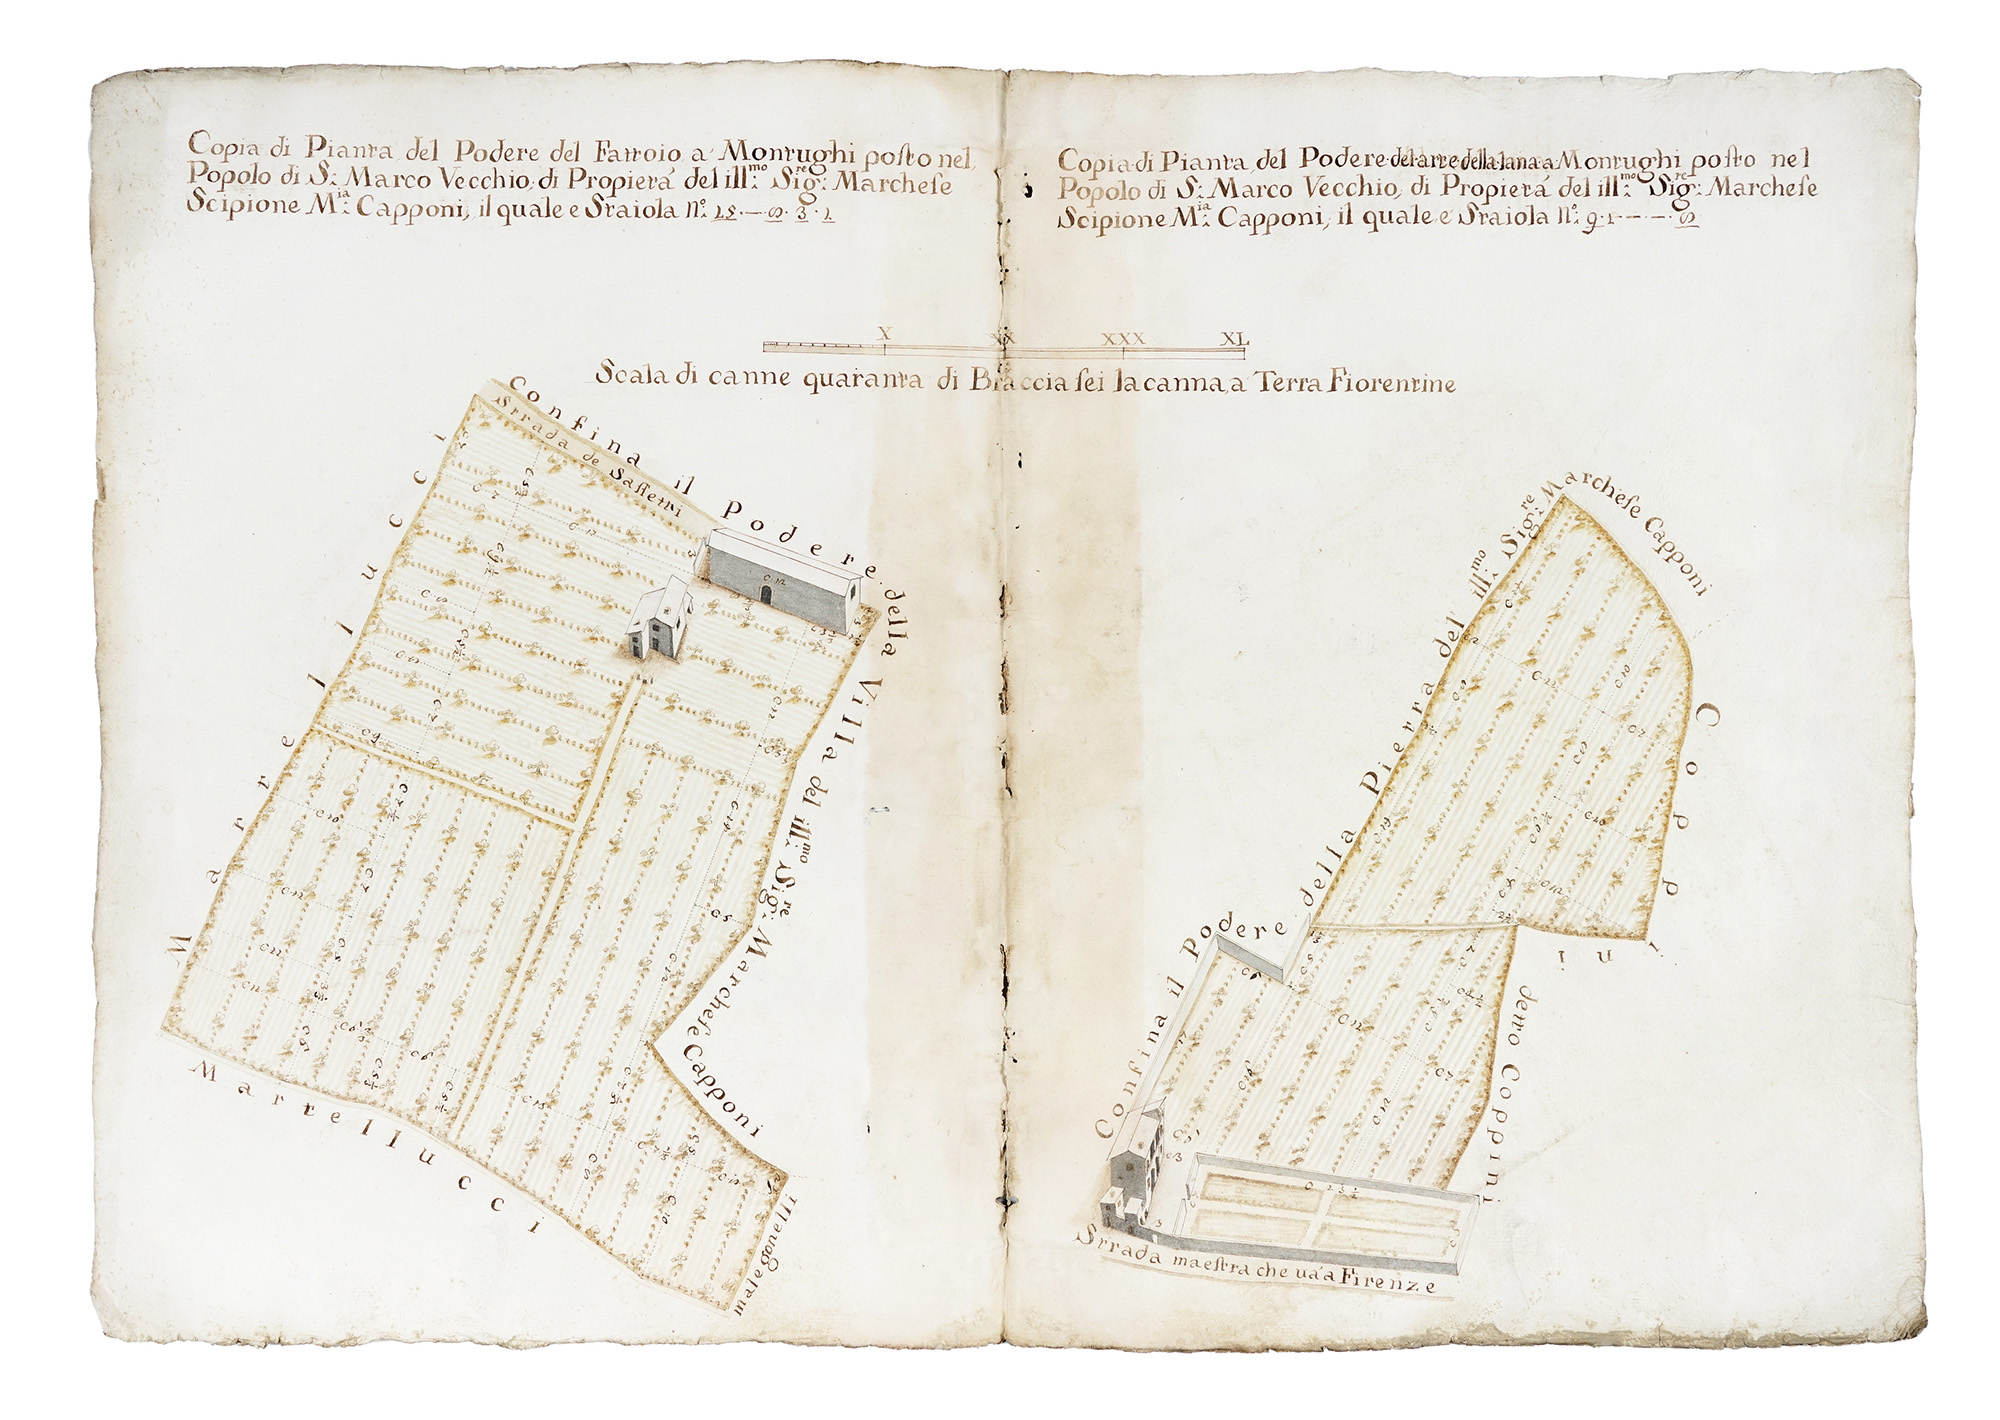 Copia di Pianta del Podere del Fattoio a Montughi poſto nel
Popolo di S: Marco Vecchio, di Propietá del ill:mo Sig:re Marcheſe
Scipione M:ia Capponi, il quale e Staiola n:o 15.—.S.3.1
Copia di Pianta del Podere del arte della lana a Montughi poſto nel
Popolo di S: Marco Vecchio, di Propietá del ill:mo Sig:re Marcheſe
Scipione M:ia Capponi, il quale e Staiola n:o 9.1—.—.S
X XX XXX XL
Scala di canne quaranta di Braccia ſei la canna, a Terra Fiorentine
Confina il Podere della Villa del ill:mo Sig:re Marcheſe Capponi
Strada de Saſſetti
Martellucci
Martellucci
malegonelli
C 7
C 12
C 12
C 9
C 7
C 10
C 12
C 14
C 5
C 12
C 6
C 18
C 10
Confina il Podere della Pietra del ill:mo Sig:re Marcheſe Capponi
Coppini
detto Coppini
C 22
C 10
C 7
C 19
C 10
C 12
C 7
C 5
C 12
C 7
C 12
C 3
3
Strada maeſtra che uá a Firenze